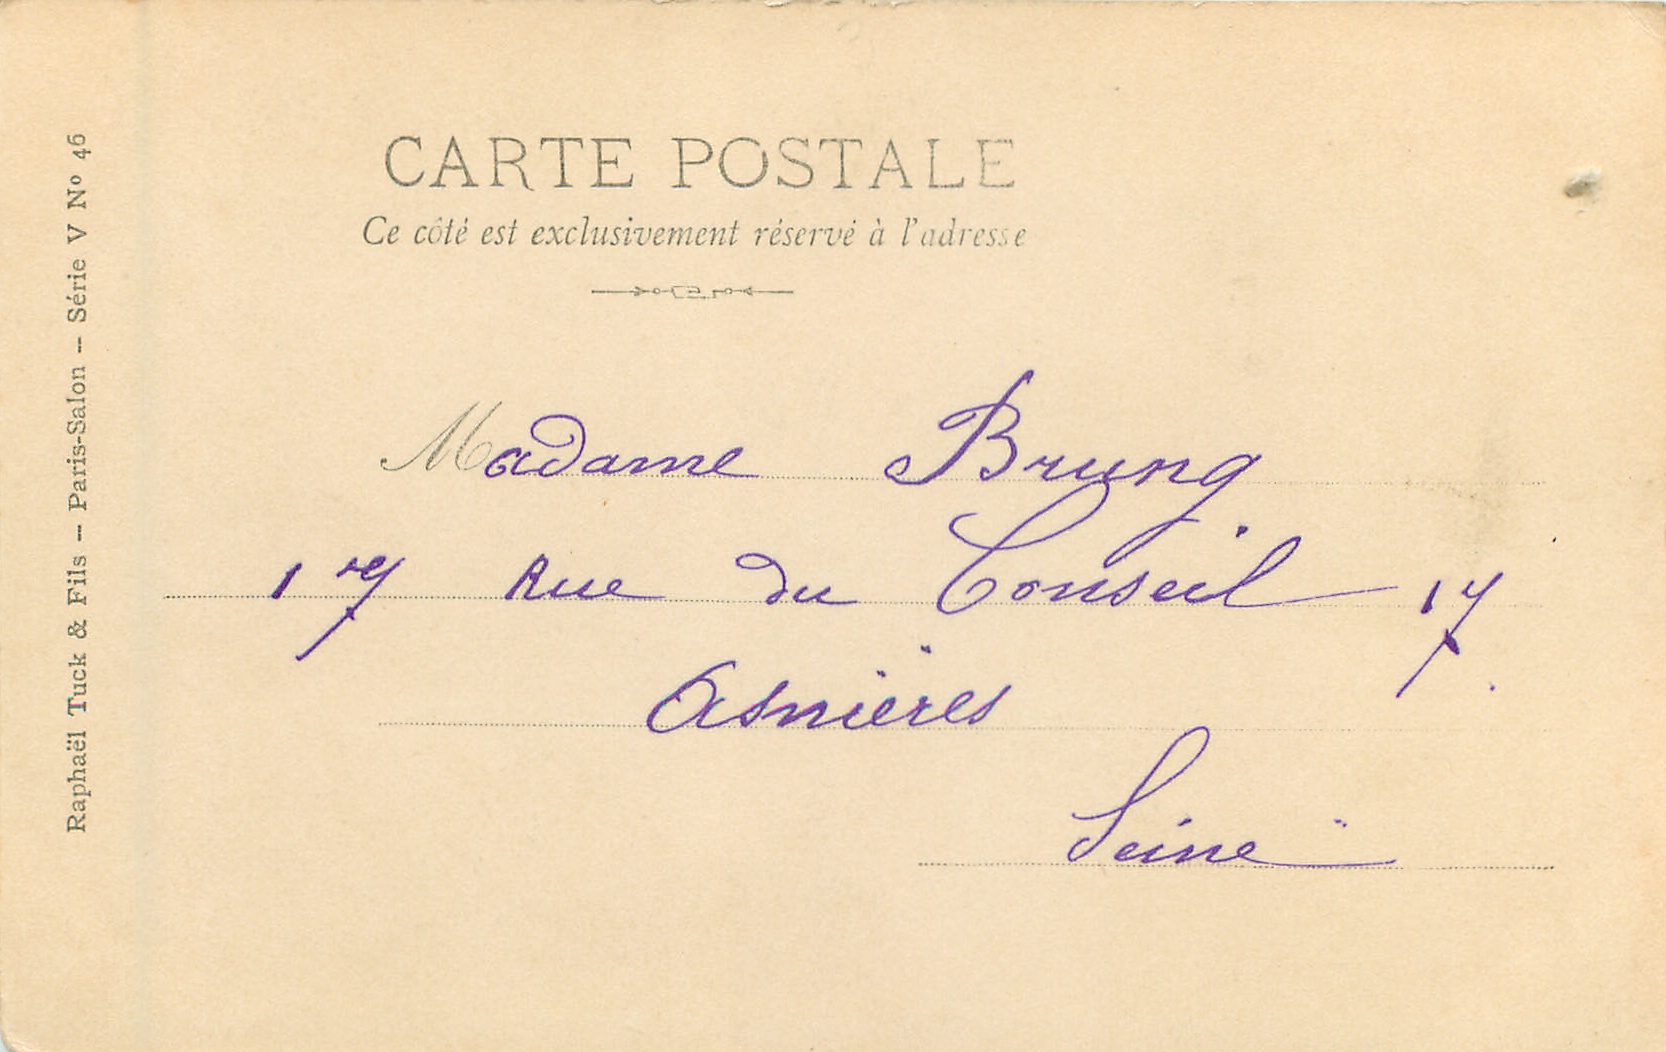 CARTE POSTALE
Ce côté est exclusivement réservé à l'adresse
Madame Brung
17 Rue du Conseil 17
Asnières
Seine
Raphaël Tuck & Fils -- Paris-Salon -- Série V Nº 46